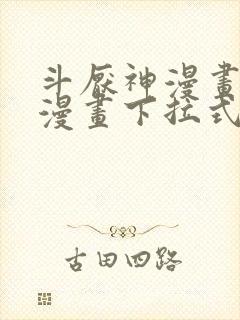 斗厭神漫畫
漫畫下拉式
古田四路